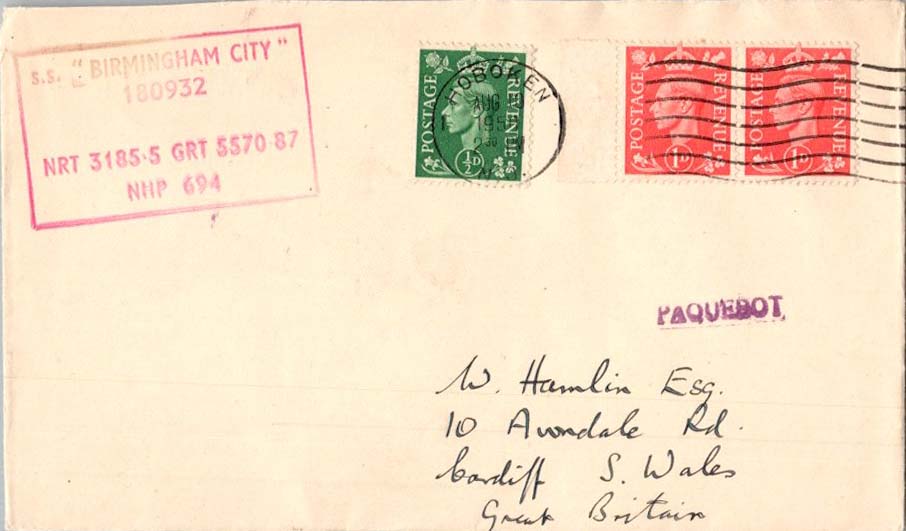 S.S. "BIRMINGHAM CITY"
180932
NRT 3185·5 GRT 5570·87
NHP 694
POSTAGE REVENUE
½D
HOBOKEN
AUG
1
POSTAGE REVENUE
1D
POSTAGE REVENUE
1D
PAQUEBOT
W. Hamlin Esq.
10 Avondale Rd.
Cardiff S. Wales
Great Britain